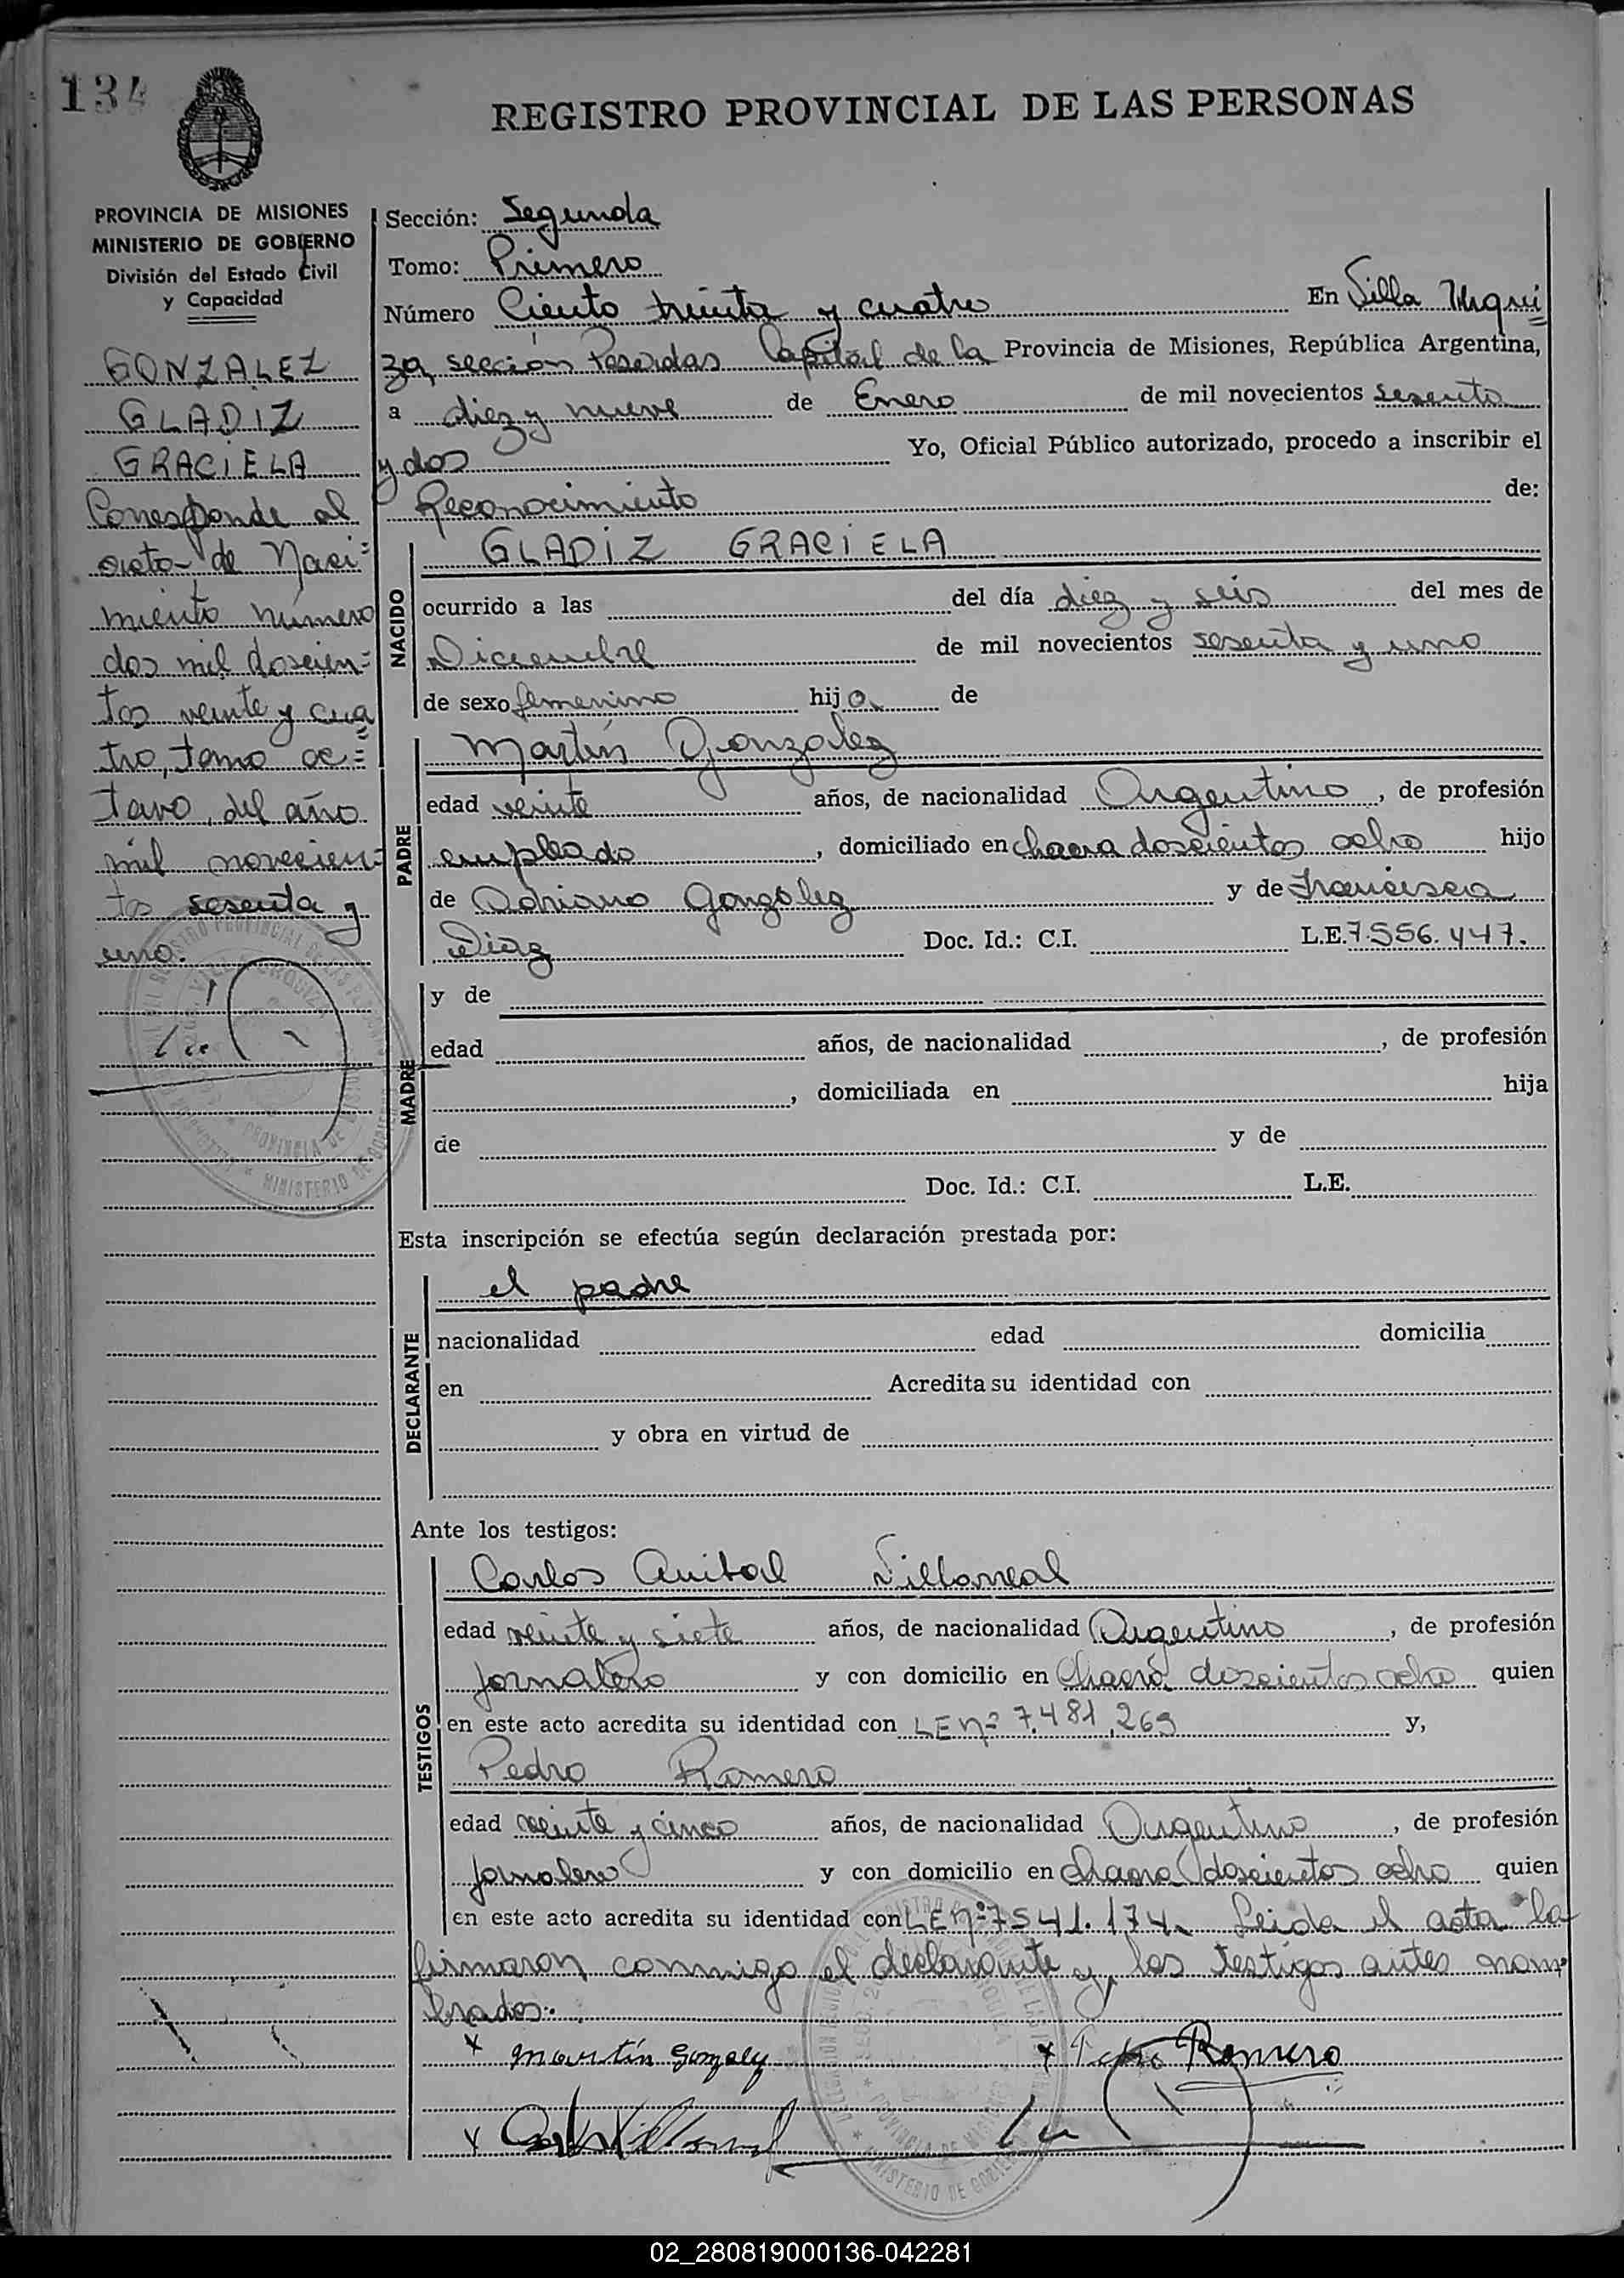 134
REGISTRO PROVINCIAL DE LAS PERSONAS
PROVINCIA DE MISIONES
MINISTERIO DE GOBIERNO
División del Estado Civil
y Capacidad
GONZALEZ
GLADIZ
GRACIELA
Corresponde al
acta de Naci=
miento número
dos mil doscien=
tos veinte y cua
tro, tomo oc=
tavo, del año
mil novecien=
tos sesenta y
uno.
Sección: Segunda
Tomo: Primero
Número Ciento treinta y cuatro En Villa Urqui
za, sección Posadas Capital de la Provincia de Misiones, República Argentina,
a diez y nueve de Enero de mil novecientos sesenta
y dos Yo, Oficial Público autorizado, procedo a inscribir el
Reconocimiento de:
NACIDO
GLADIZ GRACIELA
ocurrido a las del día diez y seis del mes de
Diciembre de mil novecientos sesenta y uno
de sexo femenino hija de
PADRE
Martín Gonzalez
edad veinte años, de nacionalidad Argentino, de profesión
empleado, domiciliado en chacra doscientos ocho hijo
de Adriano Gonzalez y de Francisca
Diaz Doc. Id.: C.I. L.E. 7.556.447.
MADRE
y de
edad años, de nacionalidad , de profesión
, domiciliada en hija
de y de
Doc. Id.: C.I. L.E.
Esta inscripción se efectúa según declaración prestada por:
DECLARANTE
el padre
nacionalidad edad domicilia
en Acredita su identidad con
y obra en virtud de
Ante los testigos:
TESTIGOS
Carlos Anibal Villarreal
edad veinte y siete años, de nacionalidad Argentino, de profesión
jornalero y con domicilio en Chacra doscientos ocho quien
en este acto acredita su identidad con LE nº 7.481.269 y,
Pedro Romero
edad veinte y cinco años, de nacionalidad Argentino, de profesión
jornalero y con domicilio en chacra doscientos ocho quien
en este acto acredita su identidad con LE nº 7541.174. Leida el acta la
firmaron conmigo el declarante y los testigos antes nom
brados.
x Martín Gonzalez x Pedro Romero
x Carlos Villarreal
02_280819000136-042281